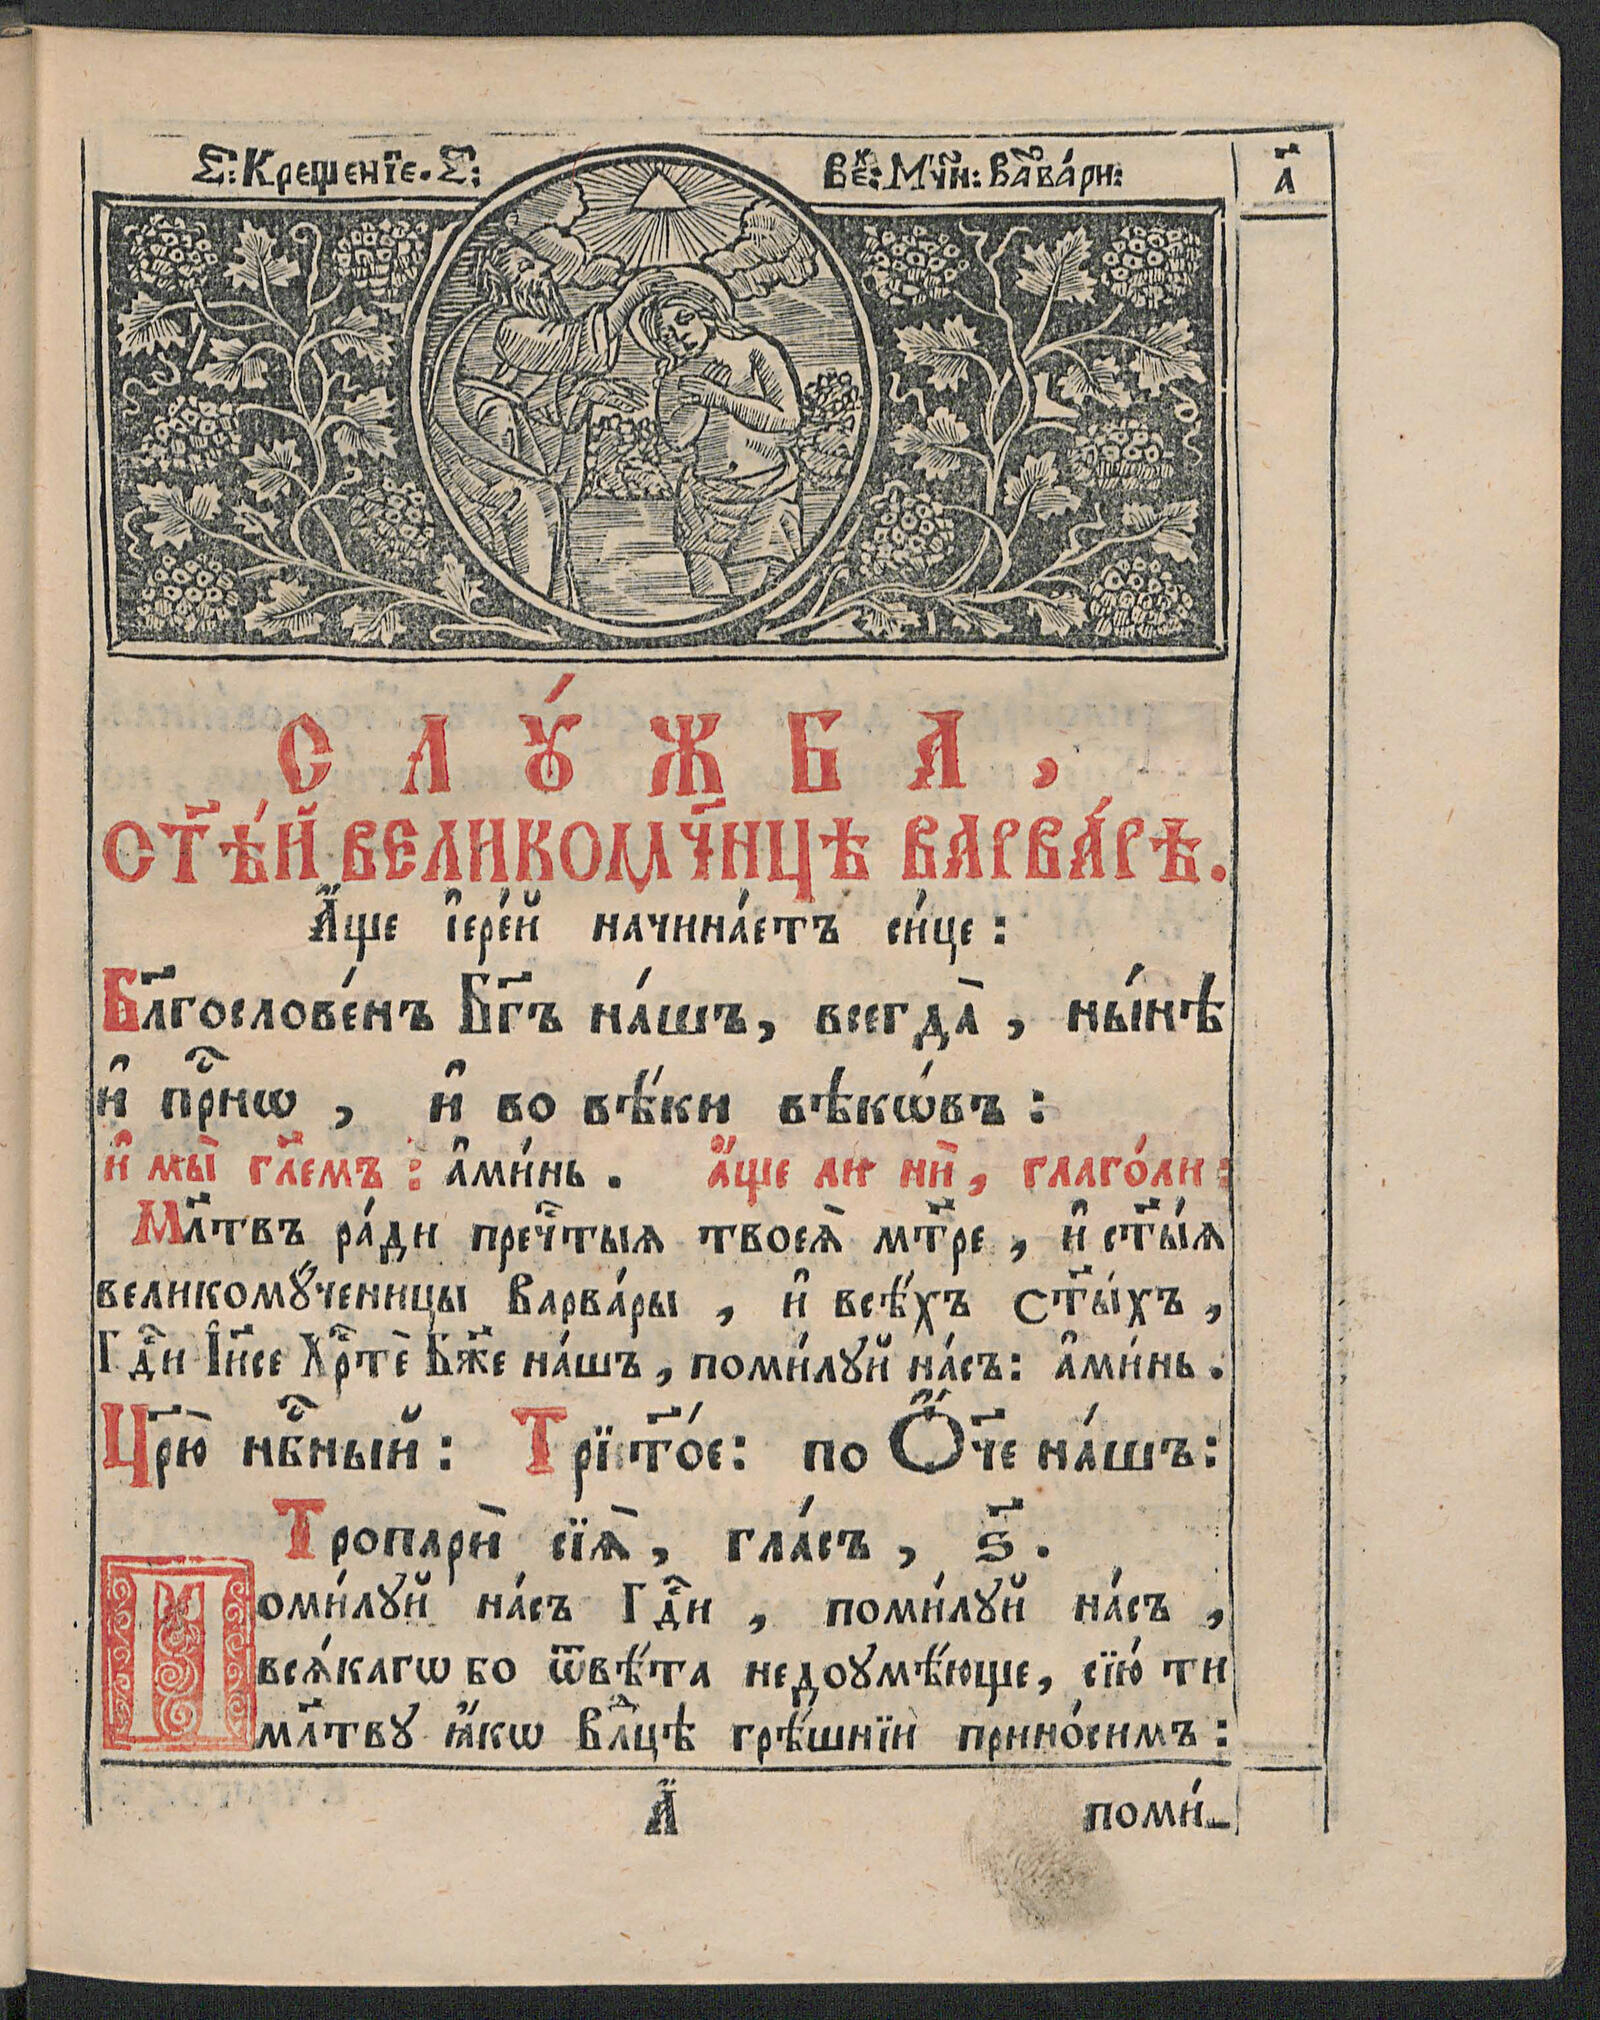 С҃: Крещенїе. С҃: Вє́к: Мч҃н: Ва҃ва́ри: а҃
СЛꙊ́ЖБА,
СТ҃Ѣ́Й ВЕЛИКОМЧ҃НЦѢ ВАРВА́РѢ.
А҆́ще і҆ере́й начина́етъ си́це:
Бл҃гослове́нъ Бг҃ъ на́шъ, всегда̀, ны́нѣ
и҆ при́снѡ, и҆ во вѣ́ки вѣкѡ́въ:
и҆ мы̀ гл҃емъ: а҆ми́нь. а҆́ще ли ни̑, глаго́ли:
Мл҃твъ ра́ди преч҇тыѧ твоеѧ̀ мт҃ре, и҆ ст҃ы́ѧ
великомꙋ́ченицы Варва́ры, и҆ всѣ́хъ ст҃ы́хъ,
Гдⷭ҇и І҆и҃се Хрⷭ҇тѐ Бж҃е на́шъ, поми́лꙋй на́съ: а҆ми́нь.
Цр҃ю̀ нбⷭ҇ный: Трист҃о́е: по Ѻ҆́ч҃е на́шъ:
Тропарѝ сїѧ̀, гла́съ, ѕ҃.
Поми́лꙋй на́съ Гдⷭ҇и, поми́лꙋй на́съ,
всѧ́кагѡ бо ѿвѣ́та недоумѣ́юще, сїю́ ти
мл҃твꙋ ꙗ҆́кѡ Влⷣцѣ грѣ́шнїи прино́симъ:
А҆́ поми́-